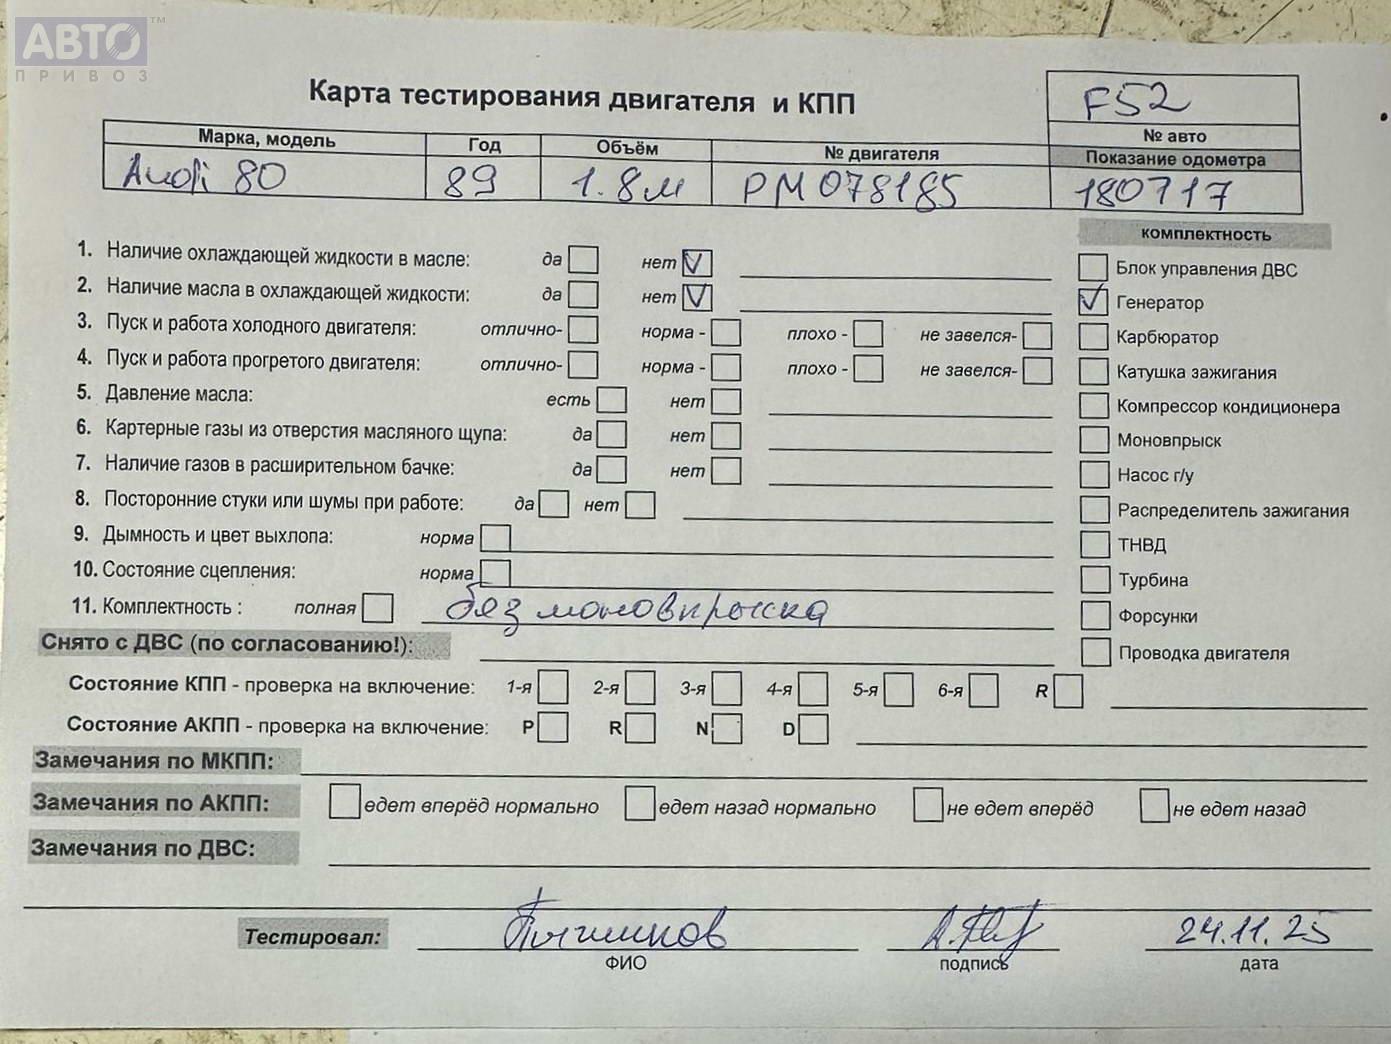 АВТО™
ПРИВОЗ
Карта тестирования двигателя и КПП
F52
№ авто
Марка, модель Год Объём № двигателя Показание одометра
Audi 80 89 1.8м PM078185 180717
комплектность
1. Наличие охлаждающей жидкости в масле: да нет
2. Наличие масла в охлаждающей жидкости: да нет
3. Пуск и работа холодного двигателя: отлично- норма - плохо - не завелся-
4. Пуск и работа прогретого двигателя: отлично- норма - плохо - не завелся-
5. Давление масла: есть нет
6. Картерные газы из отверстия масляного щупа: да нет
7. Наличие газов в расширительном бачке: да нет
8. Посторонние стуки или шумы при работе: да нет
9. Дымность и цвет выхлопа: норма
10. Состояние сцепления: норма
11. Комплектность : полная без моновпрыска
Блок управления ДВС
Генератор
Карбюратор
Катушка зажигания
Компрессор кондиционера
Моновпрыск
Насос г/у
Распределитель зажигания
ТНВД
Турбина
Форсунки
Проводка двигателя
Снято с ДВС (по согласованию!):
Состояние КПП - проверка на включение: 1-я 2-я 3-я 4-я 5-я 6-я R
Состояние АКПП - проверка на включение: P R N D
Замечания по МКПП:
Замечания по АКПП: едет вперёд нормально едет назад нормально не едет вперёд не едет назад
Замечания по ДВС:
Тестировал: 24.11.25
ФИО подпись дата